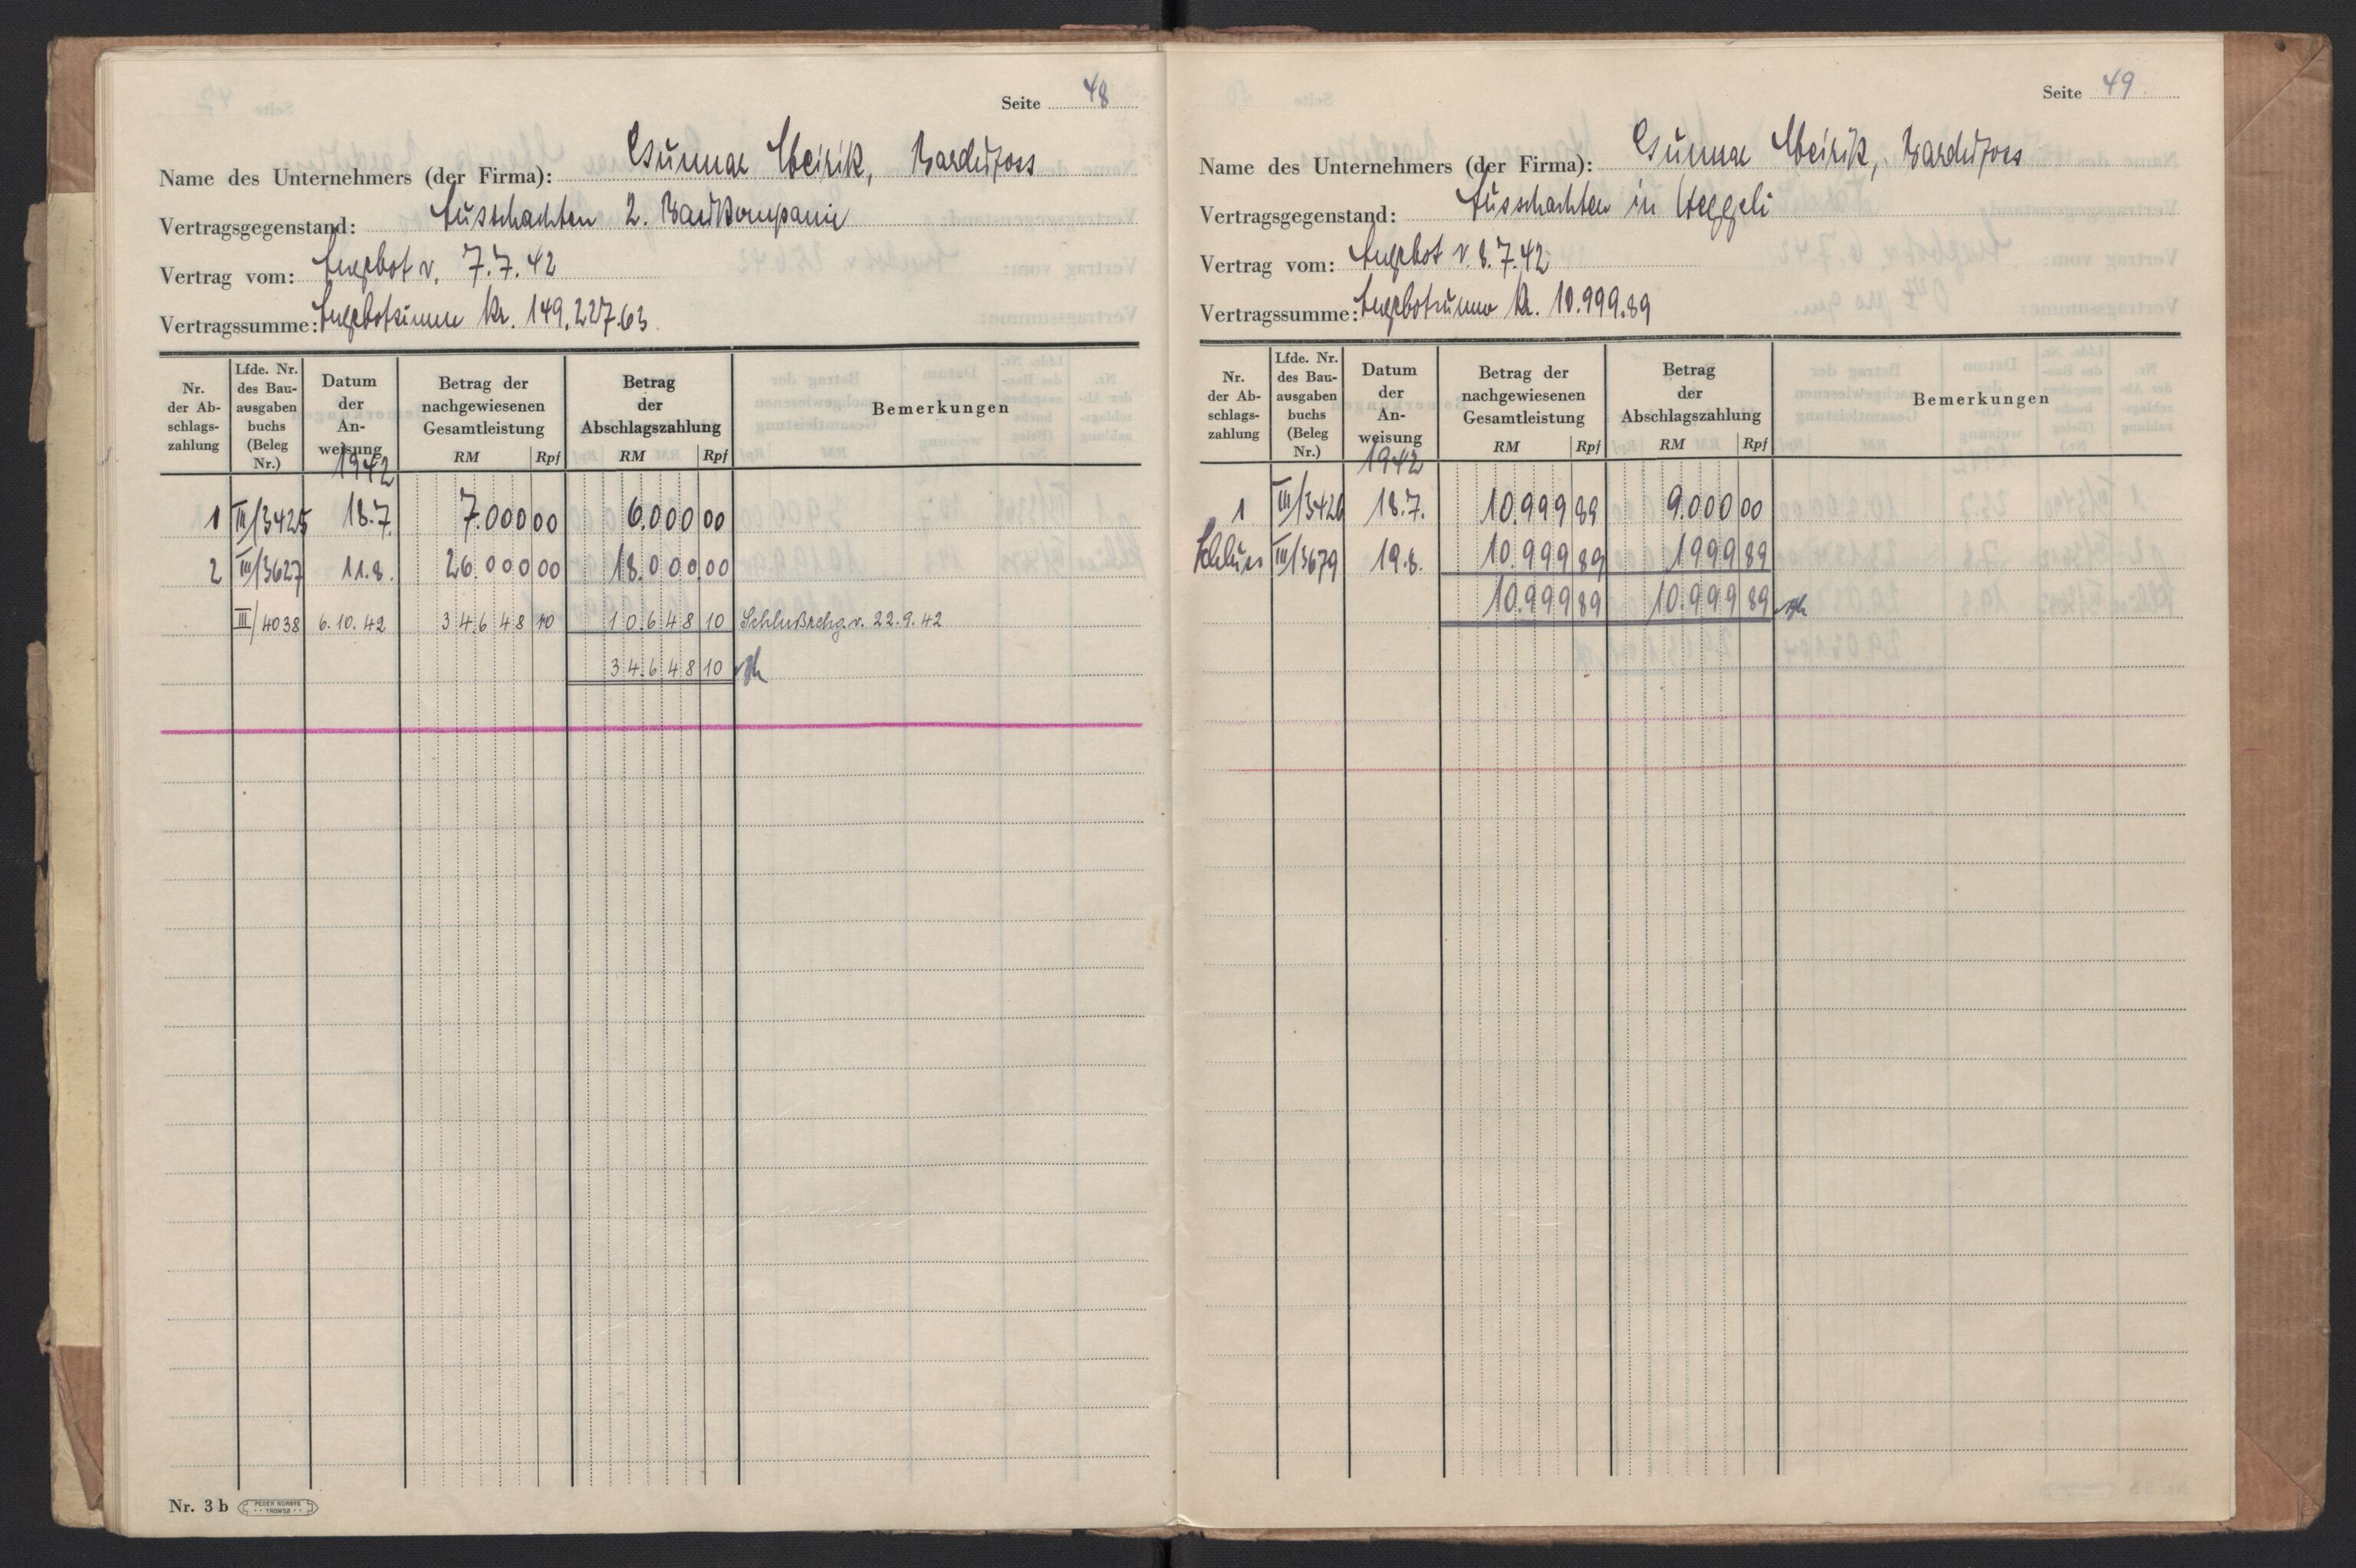 Seite 48
Name des Unternehmers (der Firma): Gunnar Meirik, Bardufoss
Vertragsgegenstand: Ausschachten 2. Baukompanie
Vertrag vom: Angebot v. 7.7.42
Vertragssumme: Angebotsumme Kr. 149.227.63
Nr. der Abschlags-zahlung | Lfde. Nr. des Bau-ausgaben buchs (Beleg Nr.) | Datum der An-weisung | Betrag der nachgewiesenen Gesamtleistung RM Rpf | Betrag der Abschlagszahlung RM Rpf | Bemerkungen
1942
1 III/3425 18.7. 7.000 00 6.000 00
2 III/3627 11.8. 26.000 00 18.000 00
III/4038 6.10.42 34648 10 10648 10 Schlußrchg. v. 22.9.42
34648 10
Nr. 3 b PEDER NORBYE TROMSØ
Seite 49
Name des Unternehmers (der Firma): Gunnar Meirik, Bardufoss
Vertragsgegenstand: Ausschachten in Heggeli
Vertrag vom: Angebot v. 8.7.42
Vertragssumme: Angebotsumme Kr. 10.999.89
Nr. der Abschlags-zahlung | Lfde. Nr. des Bau-ausgaben buchs (Beleg Nr.) | Datum der An-weisung | Betrag der nachgewiesenen Gesamtleistung RM Rpf | Betrag der Abschlagszahlung RM Rpf | Bemerkungen
1942
1 III/3426 18.7. 10.999 89 9.000 00
Schluss III/3679 19.8. 10.999 89 1999 89
10.999 89 10.999 89